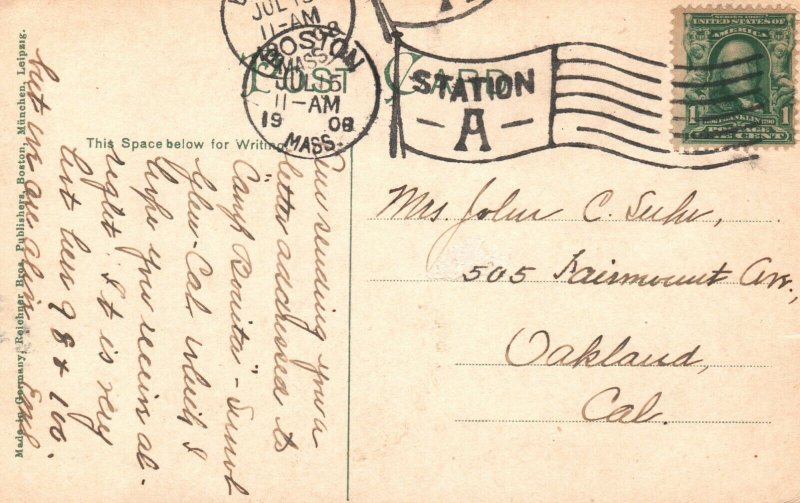 JUL 15
11-AM
BOSTON
MASS.
JUL 15
11-AM
1908
MASS.
STATION
A
POST CARD
SERIES 1902
UNITED STATES OF
AMERICA
FRANKLIN 1790
1 POSTAGE 1
CENT
This Space below for Writing
Am sending you a
letter addressed to
"Camp Bonita" -
Glen - Cal. which I
hope you receive al-
right. It is very
hot here 98 & 100
but we are
Mrs. John C. Suhr,
505 Fairmount Av.,
Oakland,
Cal.
Made in Germany, Reichner Bros., Publishers, Boston, München, Leipzig.